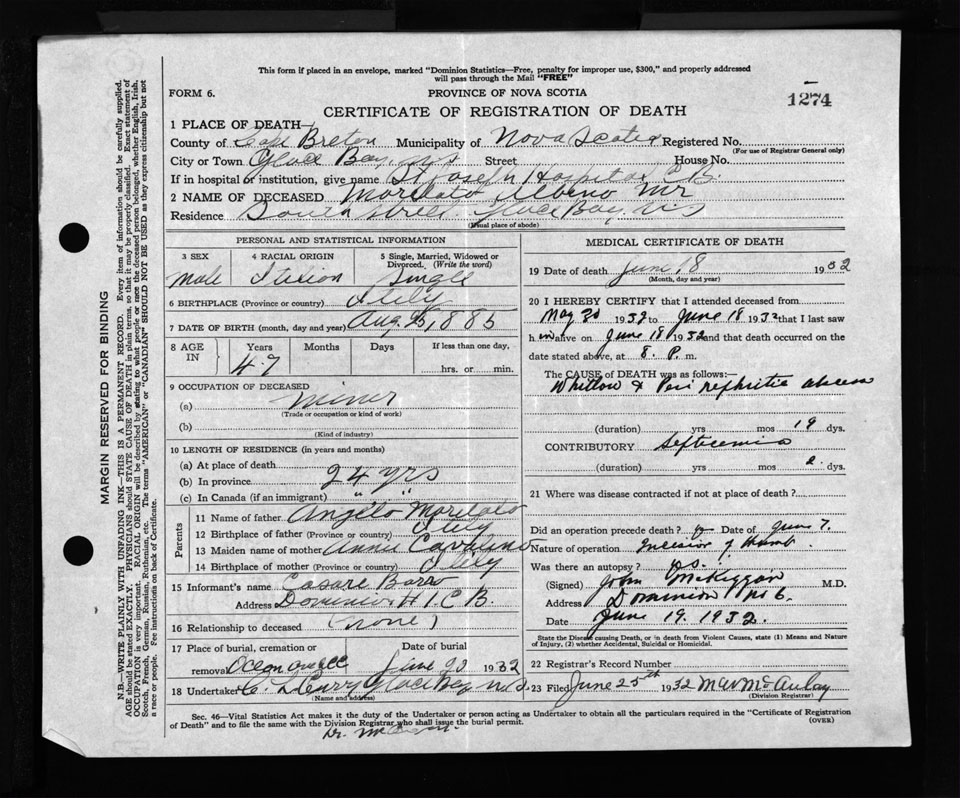 This form if placed in an envelope, marked "Dominion Statistics—Free, penalty for improper use, $300," and properly addressed
will pass through the Mail "FREE"
FORM 6.
PROVINCE OF NOVA SCOTIA
1274
CERTIFICATE OF REGISTRATION OF DEATH
1 PLACE OF DEATH
County of Cape Breton Municipality of Nova Scotia Registered No.
(For use of Registrar General only)
City or Town Glace Bay, N S Street House No.
If in hospital or institution, give name St Joseph Hospital C B.
2 NAME OF DECEASED Morelato Albeno Mr
Residence South Street. Glace Bay, N. S
(Usual place of abode)
PERSONAL AND STATISTICAL INFORMATION
3 SEX
4 RACIAL ORIGIN
5 Single, Married, Widowed or Divorced. (Write the word)
Male
Single
6 BIRTHPLACE (Province or country)
7 DATE OF BIRTH (month, day and year) Aug. 25, 1885
8 AGE IN
Years
Months
Days
If less than one day,
47
hrs. or min.
9 OCCUPATION OF DECEASED
(a) miner
(Trade or occupation or kind of work)
(b)
(Kind of industry)
10 LENGTH OF RESIDENCE (in years and months)
(a) At place of death
(b) In province 24 yrs
(c) In Canada (if an immigrant) " "
Parents
11 Name of father Angelo Morelato
12 Birthplace of father (Province or country)
13 Maiden name of mother Annie
14 Birthplace of mother (Province or country)
15 Informant's name Casare Barro
Address Dominion # 1 C. B.
16 Relationship to deceased (none)
17 Place of burial, cremation or removal
Date of burial
June 20 1932
18 Undertaker Glace Bay N. S.
(Name and address)
MEDICAL CERTIFICATE OF DEATH
19 Date of death June 18 1932
(Month, day and year)
20 I HEREBY CERTIFY that I attended deceased from
May 30 1932 to June 18 1932 that I last saw
him alive on June 18 1932 and that death occurred on the
date stated above, at 8. P. m.
The CAUSE of DEATH was as follows:
Whitlow & Peri nephritic abscess
(duration) yrs mos 19 dys.
CONTRIBUTORY Septicemia
(duration) yrs mos 2. dys.
21 Where was disease contracted if not at place of death?
Did an operation precede death? Date of June 7.
Nature of operation Incision of thumb.
Was there an autopsy?
(Signed) John McKiggan M.D.
Address Dominion No 6.
Date June 19. 1932.
State the Disease causing Death, or in death from Violent Causes, state (1) Means and Nature
of Injury, (2) whether Accidental, Suicidal or Homicidal.
22 Registrar's Record Number
23 Filed June 25th 1932 McAulay
(Division Registrar)
Sec. 46—Vital Statistics Act makes it the duty of the Undertaker or person acting as Undertaker to obtain all the particulars required in the "Certificate of Registration
of Death" and to file the same with the Division Registrar who shall issue the burial permit.
(OVER)
Dr.
MARGIN RESERVED FOR BINDING
N.B.—WRITE PLAINLY WITH UNFADING INK—THIS IS A PERMANENT RECORD. Every item of information should be carefully supplied.
AGE should be stated EXACTLY. PHYSICIANS should STATE CAUSE OF DEATH in plain terms, so that it may be properly classified. Exact statement of
OCCUPATION is very important. RACIAL ORIGIN will be described by stating to what people or race the deceased person belonged, whether English, Irish,
Scotch, French, German, Russian, Ruthenian, etc. The terms "AMERICAN" or "CANADIAN" SHOULD NOT BE USED as they express citizenship but not
a race or people. See instructions on back of Certificate.